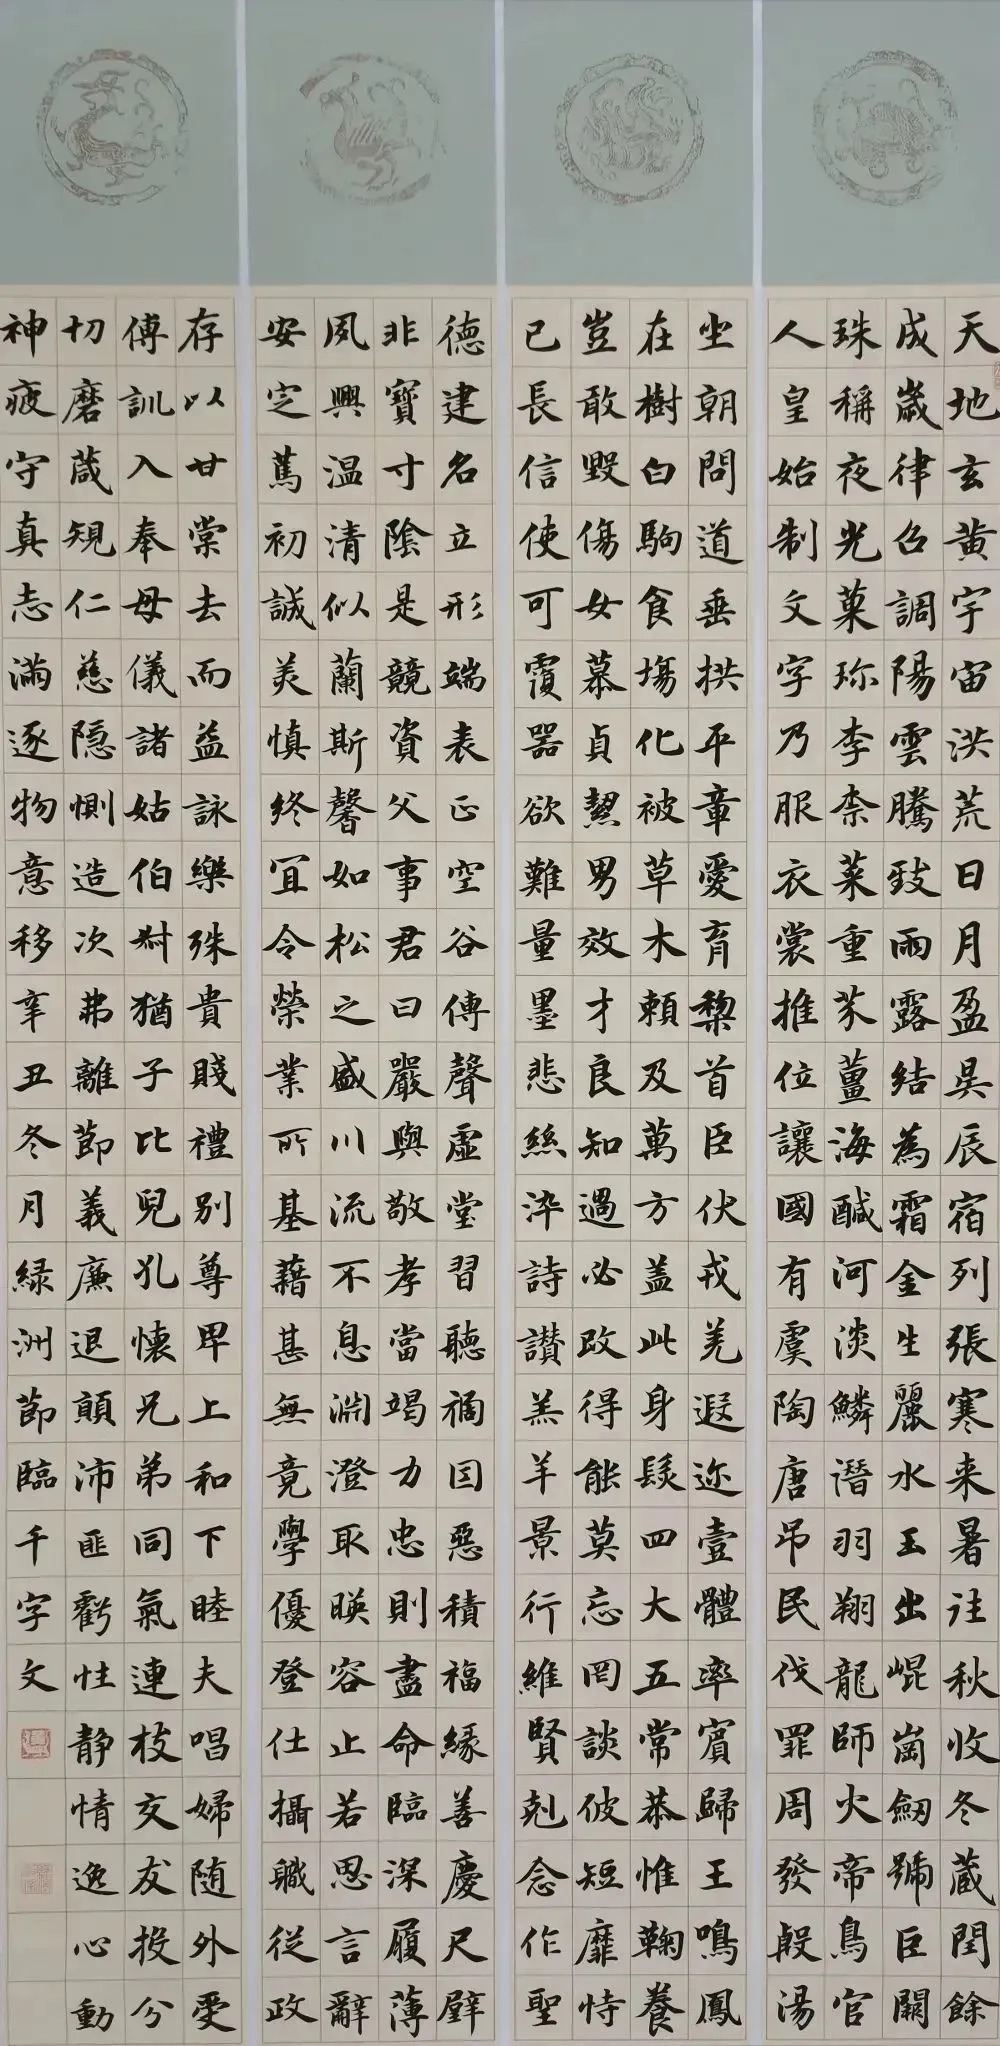 天地玄黄宇宙洪荒日月盈昃辰宿列張寒来暑往秋收冬蔵閏餘
成歳律召調陽雲騰致雨露結為霜金生麗水玉出崐崗劒號巨闕
珠稱夜光菓珎李柰菜重芥薑海醎河淡鱗潛羽翔龍師火帝鳥官
人皇始制文字乃服衣裳推位讓國有虞陶唐吊民伐罪周發殷湯
坐朝問道垂拱平章愛育黎首臣伏戎羌遐迩壹體率賓歸王鳴鳳
在樹白駒食場化被草木賴及萬方盖此身髮四大五常恭惟鞠養
豈敢毀傷女慕貞絜男效才良知過必改得能莫忘罔談彼短靡恃
已長信使可覆器欲難量墨悲絲染詩讃羔羊景行維賢剋念作聖
德建名立形端表正空谷傳聲虛堂習聽禍因惡積福緣善慶尺璧
非寶寸陰是競資父事君曰嚴與敬孝當竭力忠則盡命臨深履薄
夙興温清似蘭斯馨如松之盛川流不息淵澄取暎容止若思言辭
安定篤初誠美慎終宜令榮業所基藉甚無竟學優登仕攝職從政
存以甘棠去而益詠樂殊貴賤禮別尊卑上和下睦夫唱婦随外受
傅訓入奉母儀諸姑伯叔猶子比兒孔懷兄弟同氣連枝交友投分
切磨箴規仁慈隠惻造次弗離節義廉退顛沛匪虧性静情逸心動
神疲守真志滿逐物意移辛丑冬月緑洲節臨千字文